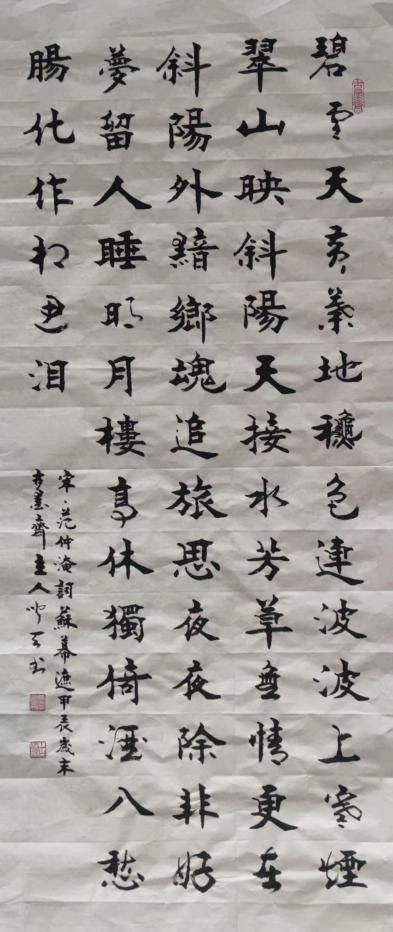 碧雲天黄葉地穐色連波波上寒煙
翠山映斜陽天接水芳草無情更在
斜陽外黯鄉魂追旅思夜夜除非好
夢留人睡明月樓高休獨倚酒八愁
腸化作相思泪
宋、范仲淹詞蘇幕遮甲辰歲末
墨齋主人书